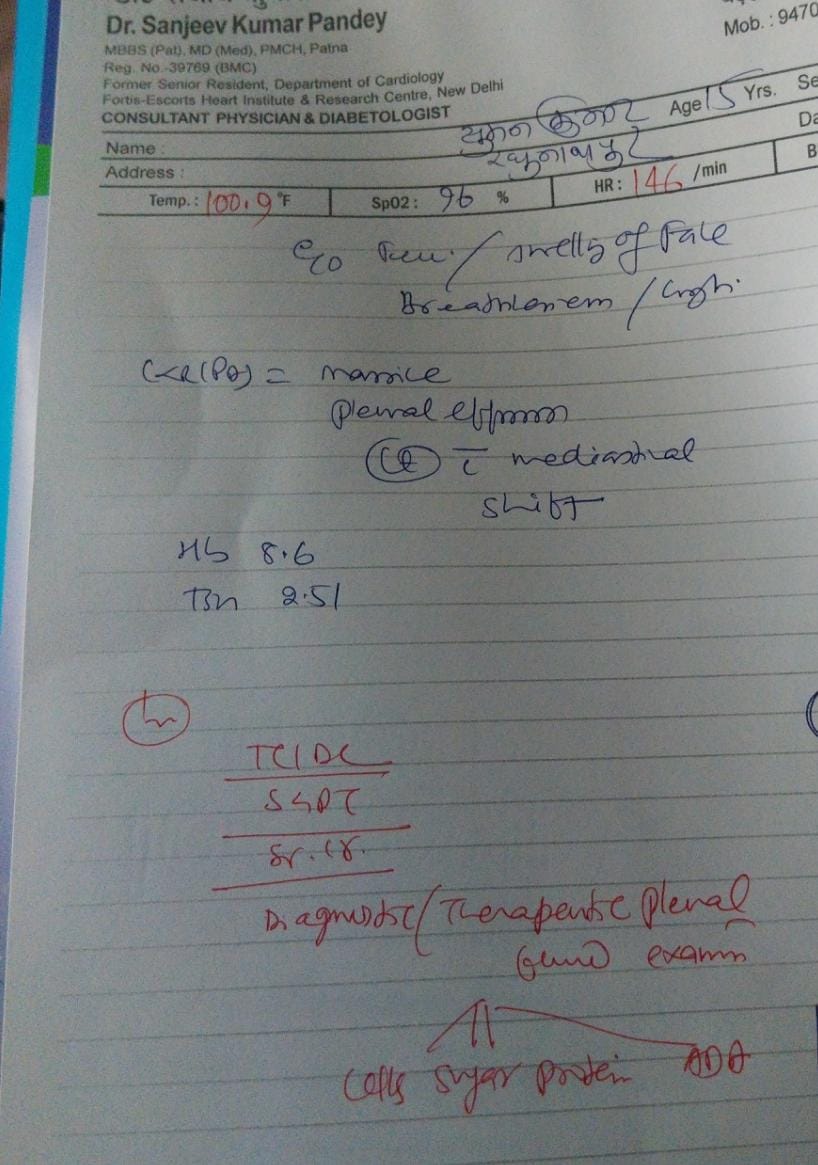 Dr. Sanjeev Kumar Pandey
MBBS (Pat), MD (Med), PMCH, Patna
Reg. No.-39769 (BMC)
Former Senior Resident, Department of Cardiology
Fortis-Escorts Heart Institute & Research Centre, New Delhi
CONSULTANT PHYSICIAN & DIABETOLOGIST
Mob. : 9470
Name : कुमार Age 15 Yrs. Se
Address : Da
Temp. : 100.9 °F SpO2 : 96 % HR : 146 /min B
C/O / swelling of Face
Breathlessness / Cough.
CXR (PA) = massive
pleural effusion
c̄ mediastinal
shift
Hb 8.6
2.51
TC/DC
SGPT
Sr. Cr.
Diagnostic/Therapeutic Pleural
fluid examn
Cells Sugar Protein ADA